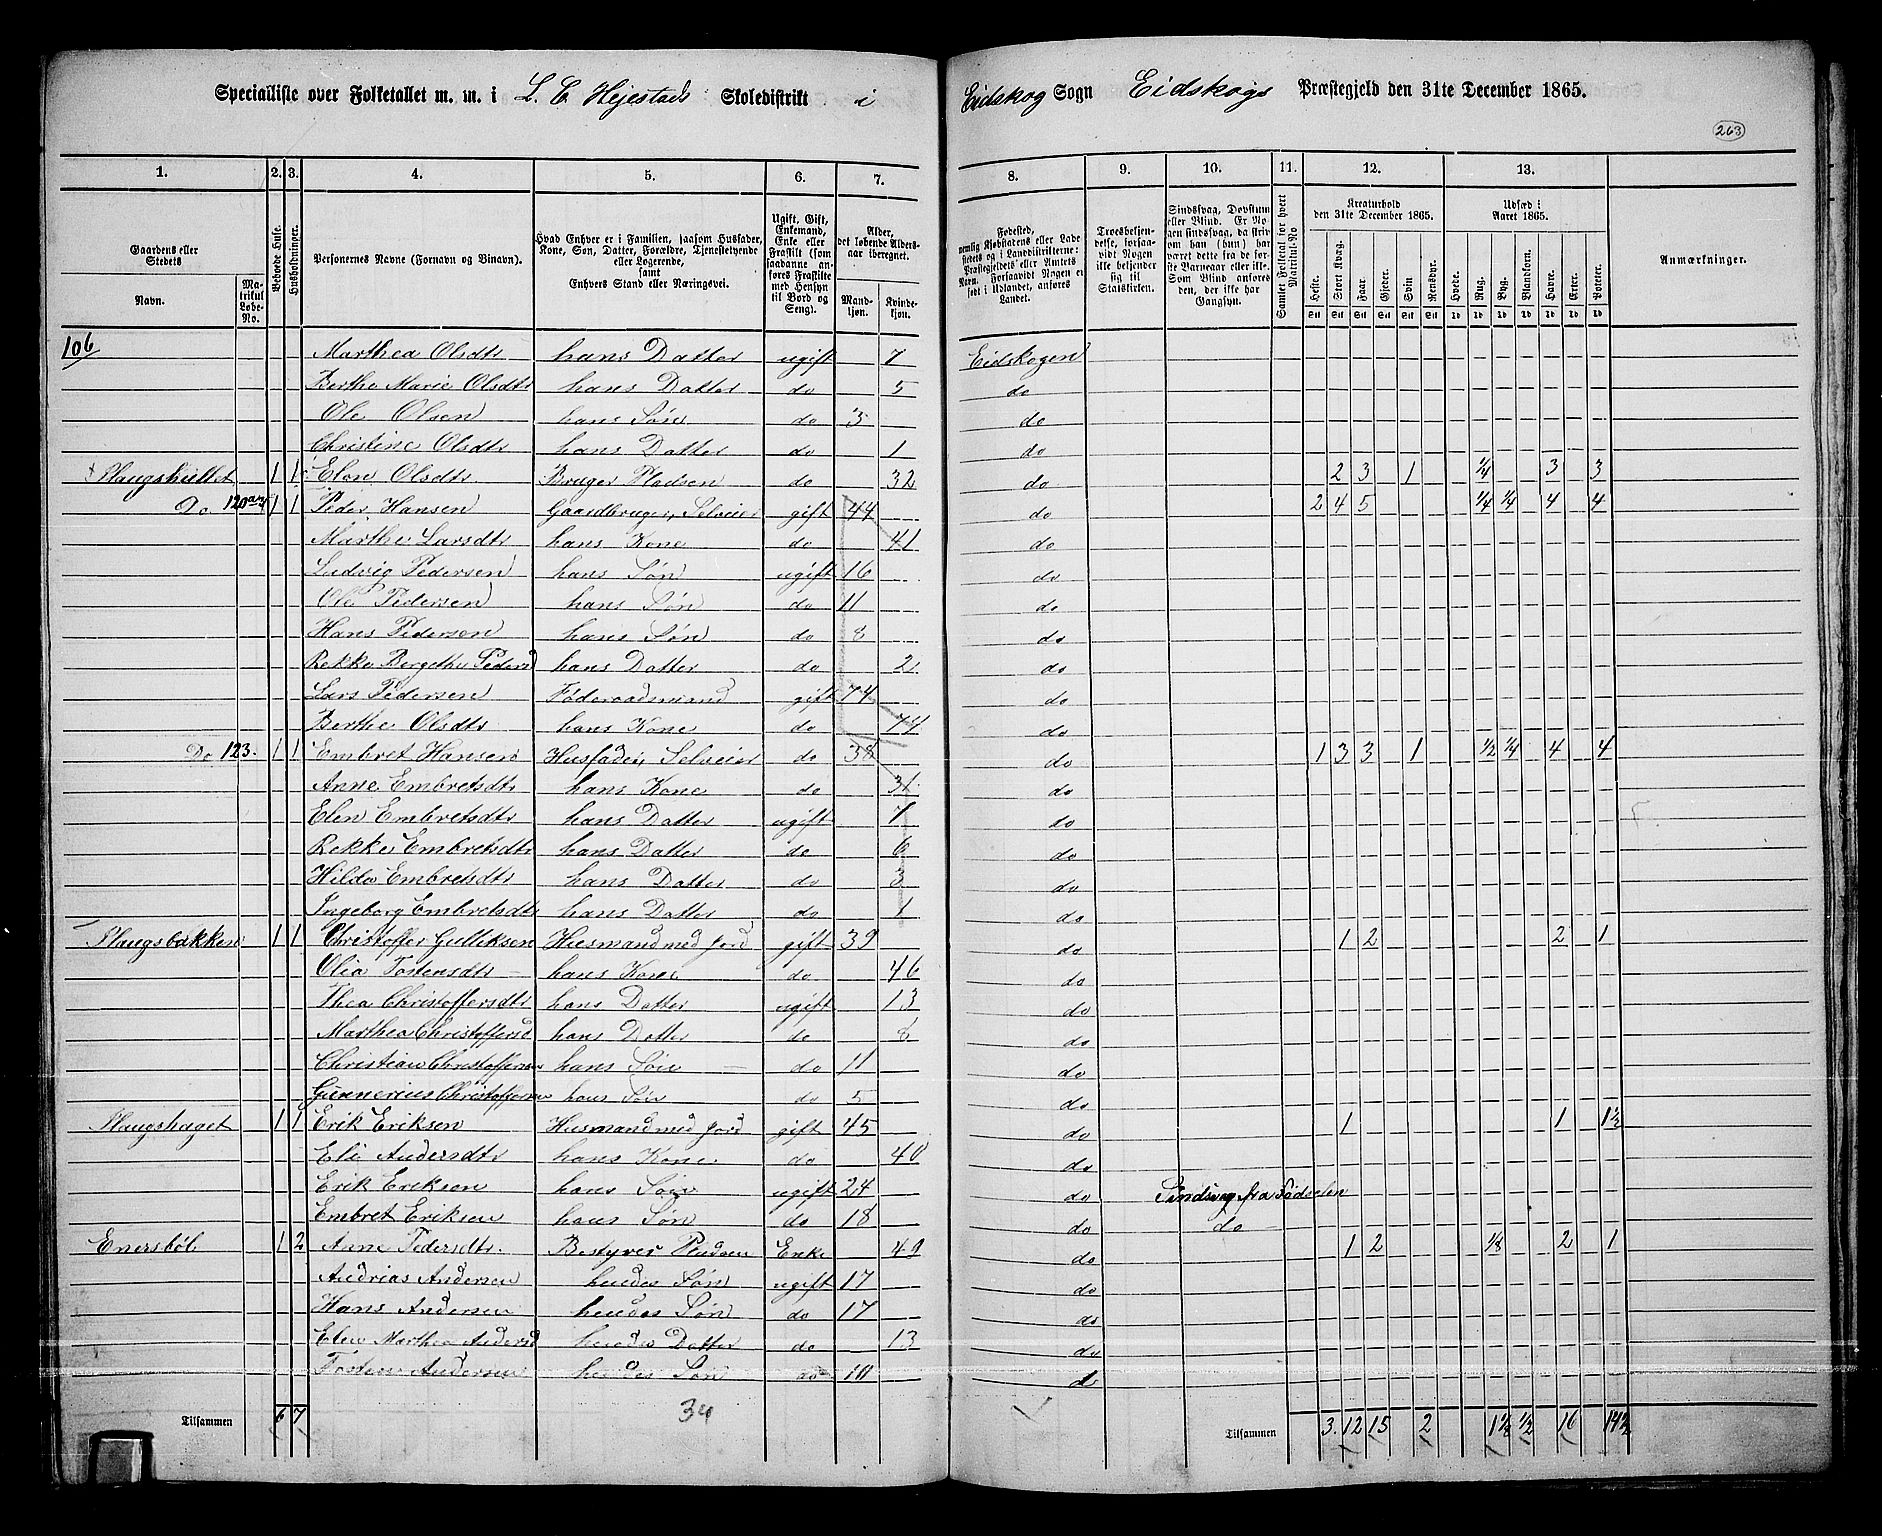 Specialliste over Folketallet m. m. i L. C. Hejestads Skoledistrikt i Eidskog Sogn Eidskogs Præstegjeld den 31te December 1865.
263
1. 2. 3. 4. 5. 6. 7. 8. 9. 10. 11. 12. 13.
Gaardens eller Stedets
Navn.
Matrikul Løbe-No.
Beboede Huse.
Husholdninger.
Personernes Navne (Fornavn og Binavn).
Hvad Enhver er i Familien, saasom Husfader, Kone, Søn, Datter, Forældre, Tjenestetyende eller Logerende, samt Enhvers Stand eller Næringsvei.
Ugift, Gift, Enkemand, Enke eller Fraskilt (som saadanne anføres Fraskilte med Hensyn til Bord og Seng).
Alder, det løbende Aldersaar iberegnet.
Mandkjøn. Kvindekjøn.
Fødested, nemlig Kjøbstadens eller Ladestedets og i Landdistrikterne: Præstegjeldets eller Annexets Navn. Forsaavidt Nogen er født i Udlandet, anføres Landet.
Troesbekjendelse, forsaavidt Nogen ikke bekjender sig til Statskirken.
Sindssvag, Døvstum eller Blind. Er Nogen sindssvag, da skrives om han (hun) har været dette fra de første Barneaar eller ikke. Som Blind anføres den, der ikke har Gangsyn.
Samlet Folketal for hvert Matrikul-No
Kreaturhold den 31te December 1865.
Heste. Stort Kvæg. Faar. Gjeder. Svin. Rensdyr.
Udsæd i Aaret 1865.
Hvede. Rug. Byg. Blandkorn. Havre. Erter. Poteter.
Anmærkninger.
106 Marthea Olsdtr hans Datter ugift 7 Eidskogen
Berthe Marie Olsdtr hans Datter do 5 do
Ole Olsen hans Søn do 3 do
Christine Olsdtr hans Datter do 1 do
Plaugshullet 1 1 Elen Olsdtr Bruger Pladsen do 32 do 2 3 1 1/4 3 3
Do 120 1 1 Peder Hansen Gaardbruger, Selveier gift 44 do 2 4 5 1/4 1/4 4 4
Marthe Larsdtr hans Kone do 41 do
Ludvig Pedersen hans Søn ugift 16 do
Ole Pedersen hans Søn do 11 do
Hans Pedersen hans Søn do 8 do
Rekke Bergethe Pedersd hans Datter do 2 do
Lars Pedersen Føderaadsmand gift 74 do
Berthe Olsdtr hans Kone do 74 do
Do 123. 1 1 Embret Hansen Husfader, Selveier do 38 do 1 3 3 1 1/2 1/4 4 4
Anne Embretsdtr hans Kone do 31 do
Elen Embretsdtr hans Datter ugift 7 do
Rekke Embretsdtr hans Datter do 6 do
Hilda Embretsdtr hans Datter do 3 do
Ingeborg Embretsdtr hans Datter do 1 do
Plaugsbakken 1 1 Christoffer Gulliksen Husmand med Jord gift 39 do 1 2 2 1
Olia Tostensdtr hans Kone do 46 do
Thea Christoffersdtr hans Datter ugift 13 do
Marthea Christoffersd hans Datter do 8 do
Christian Christoffersen hans Søn do 11 do
Gunnerius Christoffersen hans Søn do 5 do
Plaugshaget 1 1 Erik Eriksen Husmand med Jord gift 45 do 1 1 1 1/2
Eli Andersdtr hans Kone do 40 do
Erik Eriksen hans Søn ugift 24 do Sindsvag fra Fødselen
Embret Eriksen hans Søn do 18 do do
Enersbøl 1 2 Anne Pedersdtr Bestyrer Pladsen Enke 49 do 1 2 1/8 2 1
Andrias Andersen hendes Søn ugift 17 do
Hans Andersen hendes Søn do 17 do
Elen Marthea Andersd hendes Datter do 13 do
Tosten Andersen hendes Søn do 10 d
Tilsammen 6 7 34 Tilsammen 3. 12 15 2 1 1/8 1/2 16 14 1/2